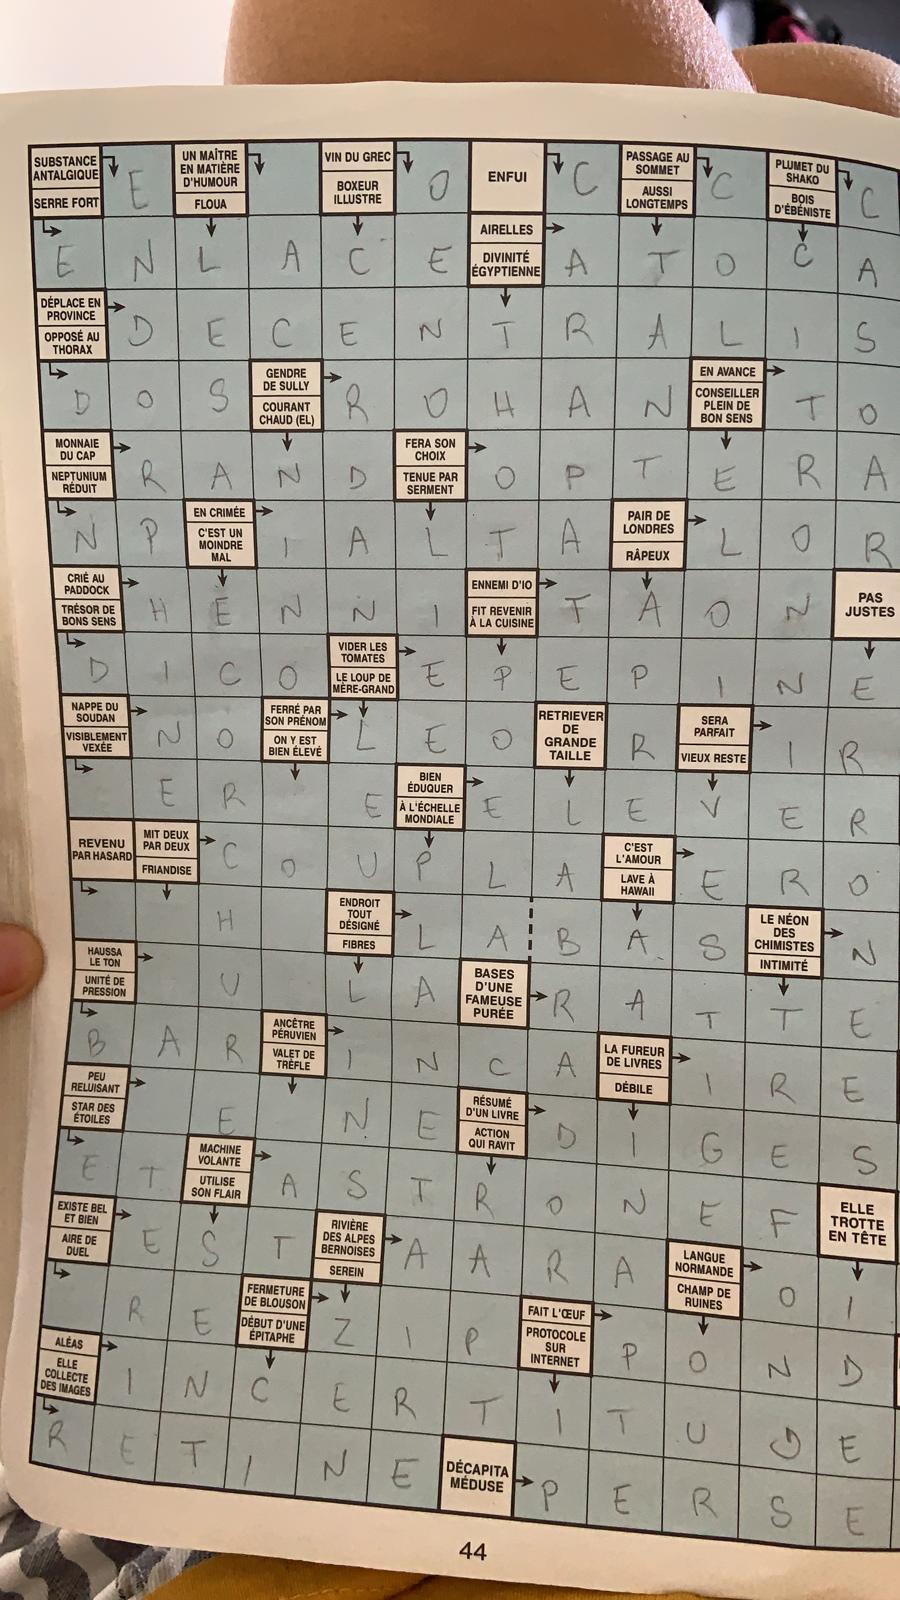 SUBSTANCE ANTALGIQUE
SERRE FORT
E
UN MAÎTRE EN MATIÈRE D'HUMOUR
FLOUA
VIN DU GREC
BOXEUR ILLUSTRE
O
ENFUI
C
PASSAGE AU SOMMET
AUSSI LONGTEMPS
C
PLUMET DU SHAKO
BOIS D'ÉBÉNISTE
C
E N L A C E
AIRELLES
DIVINITÉ ÉGYPTIENNE
A T O C A
DÉPLACE EN PROVINCE
OPPOSÉ AU THORAX
D E C E N T R A L I S
D O S
GENDRE DE SULLY
COURANT CHAUD (EL)
R O H A N
EN AVANCE
CONSEILLER PLEIN DE BON SENS
T O
MONNAIE DU CAP
NEPTUNIUM RÉDUIT
R A N D
FERA SON CHOIX
TENUE PAR SERMENT
O P T E R A
N P
EN CRIMÉE
C'EST UN MOINDRE MAL
I A L T A
PAIR DE LONDRES
RÂPEUX
L O R
CRIÉ AU PADDOCK
TRÉSOR DE BONS SENS
H E N N I
ENNEMI D'IO
FIT REVENIR À LA CUISINE
T A O N
PAS JUSTES
D I C O
VIDER LES TOMATES
LE LOUP DE MÈRE-GRAND
E P E P I N E
NAPPE DU SOUDAN
VISIBLEMENT VEXÉE
N O
FERRÉ PAR SON PRÉNOM
ON Y EST BIEN ÉLEVÉ
L E O
RETRIEVER DE GRANDE TAILLE
R
SERA PARFAIT
VIEUX RESTE
I R
E R E
BIEN ÉDUQUER
À L'ÉCHELLE MONDIALE
E L E V E R
REVENU PAR HASARD
MIT DEUX PAR DEUX
FRIANDISE
C O U P L A
C'EST L'AMOUR
LAVE À HAWAII
E R O
H
ENDROIT TOUT DÉSIGNÉ
FIBRES
L A B A S
LE NÉON DES CHIMISTES
INTIMITÉ
N
HAUSSA LE TON
UNITÉ DE PRESSION
U L A
BASES D'UNE FAMEUSE PURÉE
R A T T E
B A R
ANCÊTRE PÉRUVIEN
VALET DE TRÈFLE
I N C A
LA FUREUR DE LIVRES
DÉBILE
I R E
PEU RELUISANT
STAR DES ÉTOILES
E N E
RÉSUMÉ D'UN LIVRE
ACTION QUI RAVIT
D I G E S
E T
MACHINE VOLANTE
UTILISE SON FLAIR
A S T R O N E F
ELLE TROTTE EN TÊTE
EXISTE BEL ET BIEN
AIRE DE DUEL
E S T
RIVIÈRE DES ALPES BERNOISES
SEREIN
A A R A
LANGUE NORMANDE
CHAMP DE RUINES
O I
R E
FERMETURE DE BLOUSON
DÉBUT D'UNE ÉPITAPHE
Z I P
FAIT L'ŒUF
PROTOCOLE SUR INTERNET
P O N D
ALÉAS
ELLE COLLECTE DES IMAGES
I N C E R T I T U D E
R E T I N E
DÉCAPITA MÉDUSE
P E R S E
44